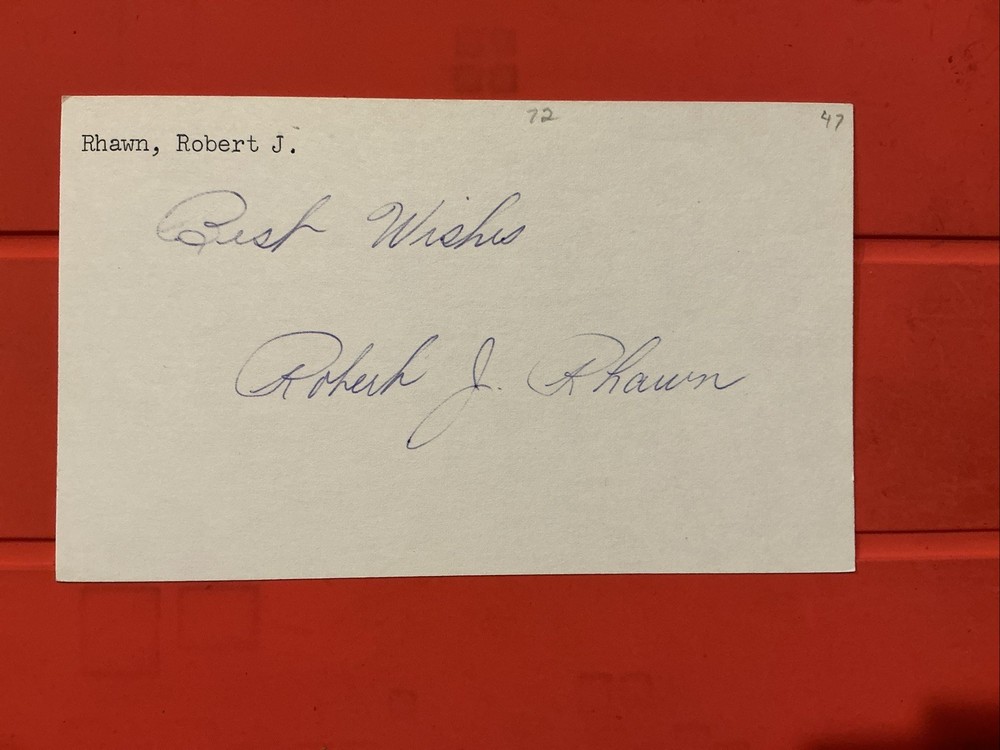 72 47
Rhawn, Robert J.
Best Wishes
Robert J. Rhawn